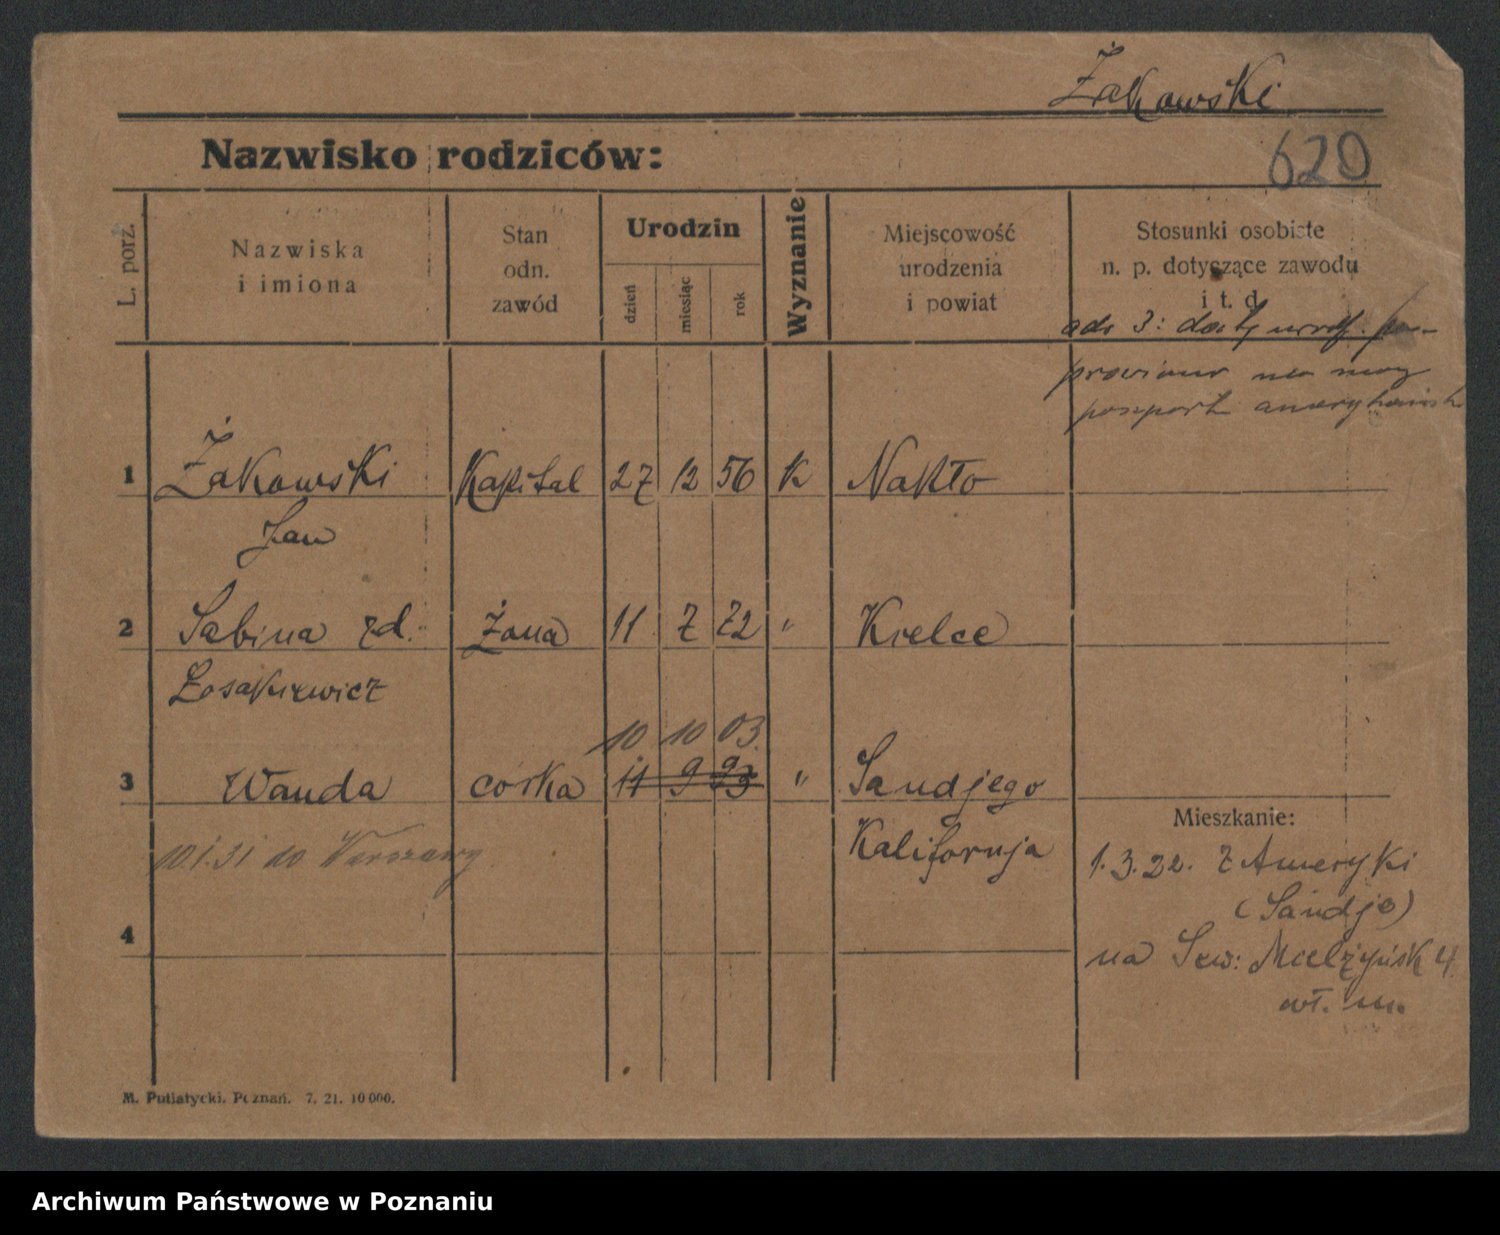 Żakowski
620
Nazwisko rodziców:
L. porz.
Nazwiska
i imiona
Stan
odn.
zawód
Urodzin
dzień
miesiąc
rok
Wyznanie
Miejscowość
urodzenia
i powiat
Stosunki osobiste
n. p. dotyczące zawodu
i t. d.
ad 3: daty urodz. po-
prawiono na mocy
paszportu
1 Żakowski Kapital 27 12 56 K Nakło
Jan
2 Sabina zd. żona 11 7 72 " Kielce
Łosakiewicz
10 10 03
3 Wanda córka 11 9 93 " Sandjego
Kalifornja
10.1.31 do Warszawy
4
Mieszkanie:
1.3.22. z Ameryki
(Sandjo)
na Sew: Mielżyńsk 4
wł. m.
M. Putiatycki, Poznań. 7. 21. 10 000.
Archiwum Państwowe w Poznaniu